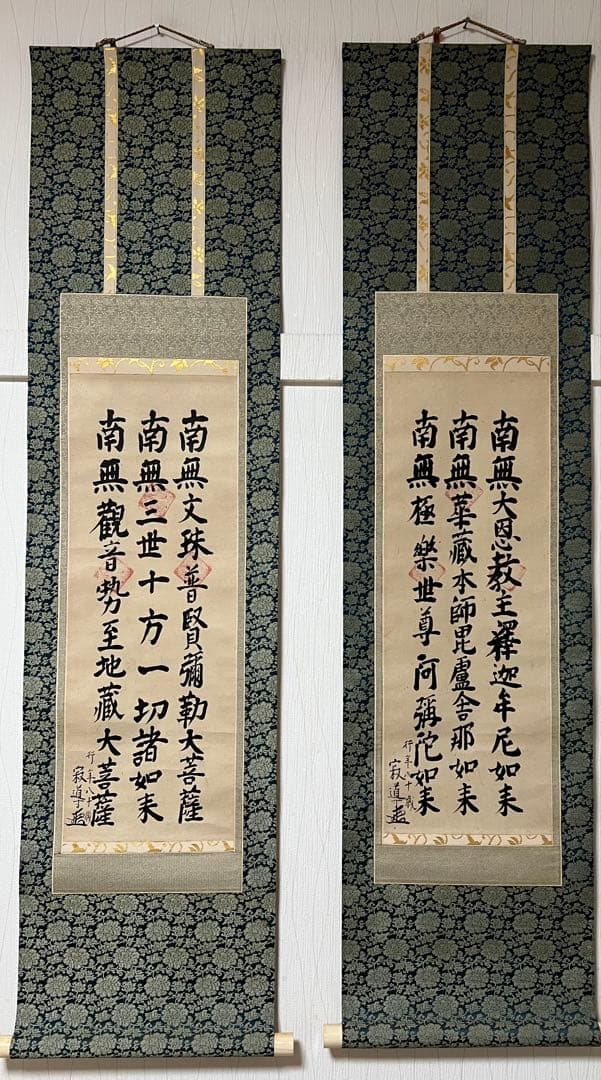 南無大恩教主釋迦牟尼如来
南無華藏本師毘盧舍那如来
南無極樂世尊阿彌陀如来
行年八十歳
寂道
南無文珠普賢彌勒大菩薩
南無三世十方一切諸如来
南無觀音勢至地藏大菩薩
行年八十歳
寂道